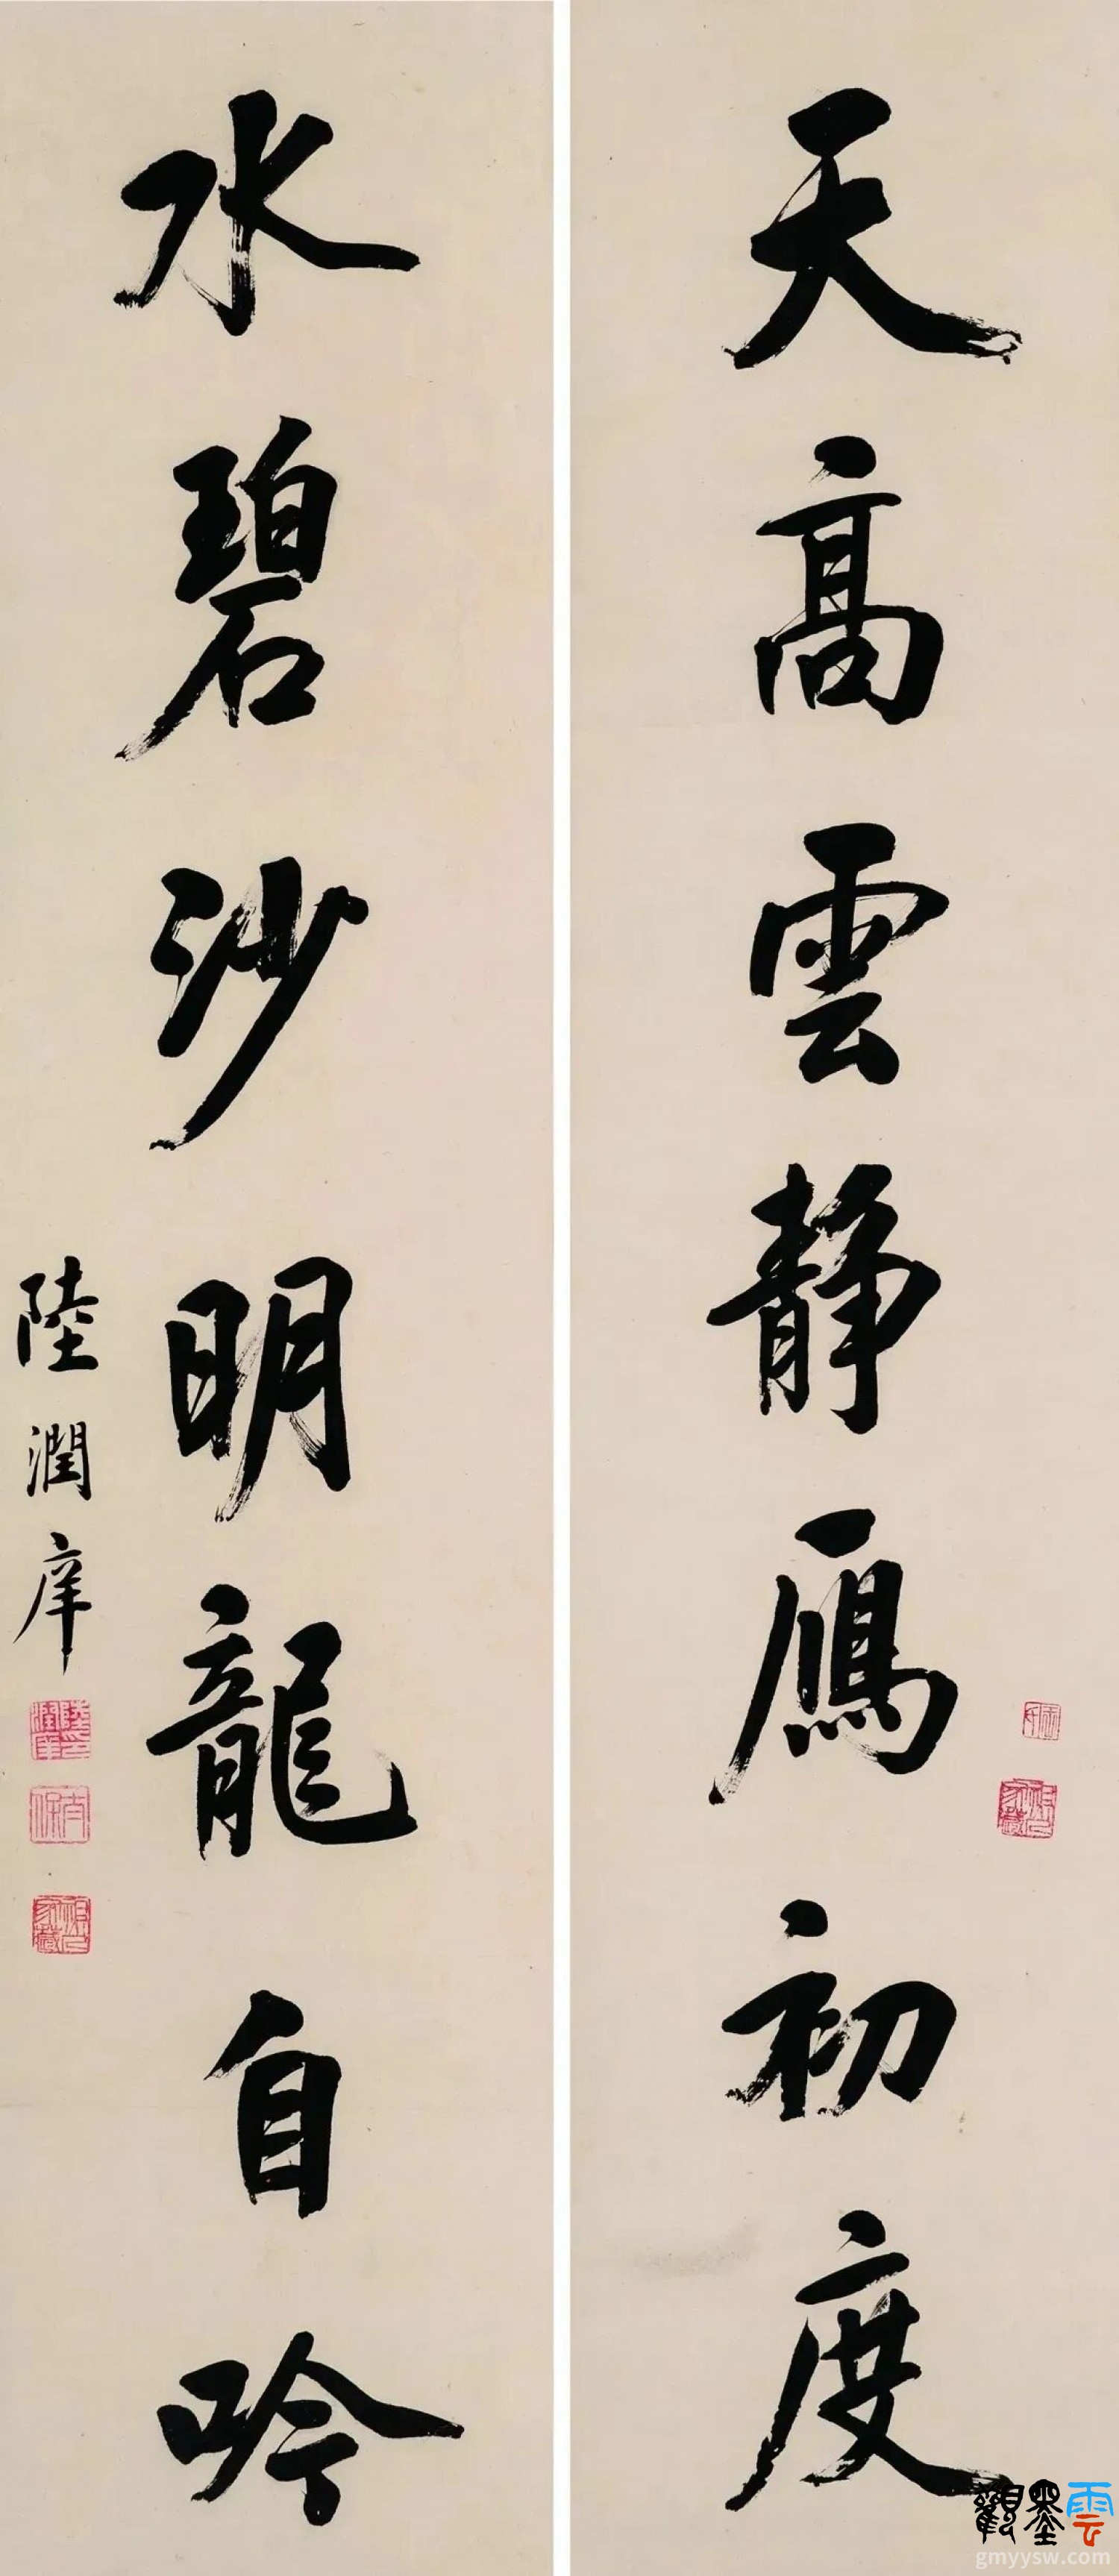 天高雲靜鴈初度
水碧沙明龍自吟
陸潤庠
陸潤庠印
太保
觀墨雲
gmyysw.com